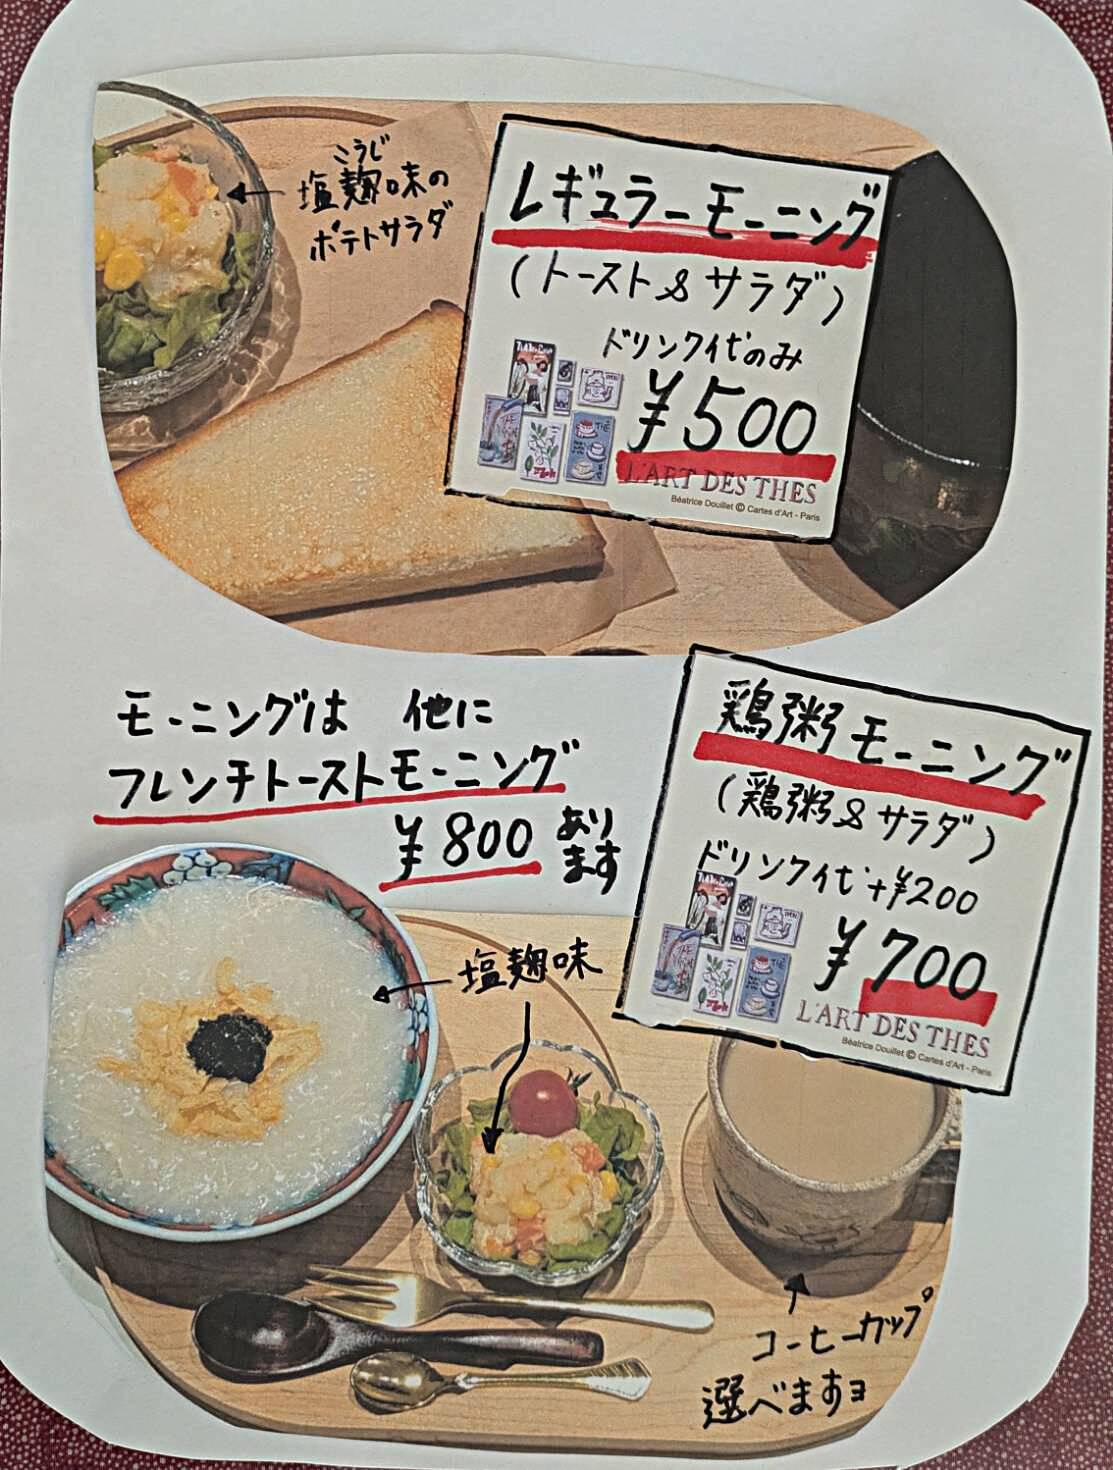 こうじ
塩麹味の
ポテトサラダ
レギュラーモーニング
(トースト&サラダ)
ドリンク代のみ
¥500
L'ART DES THES
Béatrice Douillet © Cartes d'Art - Paris
モーニングは 他に
フレンチトーストモーニング
¥800 あり
ます
鶏粥モーニング
(鶏粥&サラダ)
ドリンク代+¥200
¥700
L'ART DES THES
Béatrice Douillet © Cartes d'Art - Paris
塩麹味
コーヒーカップ
選べますヨ